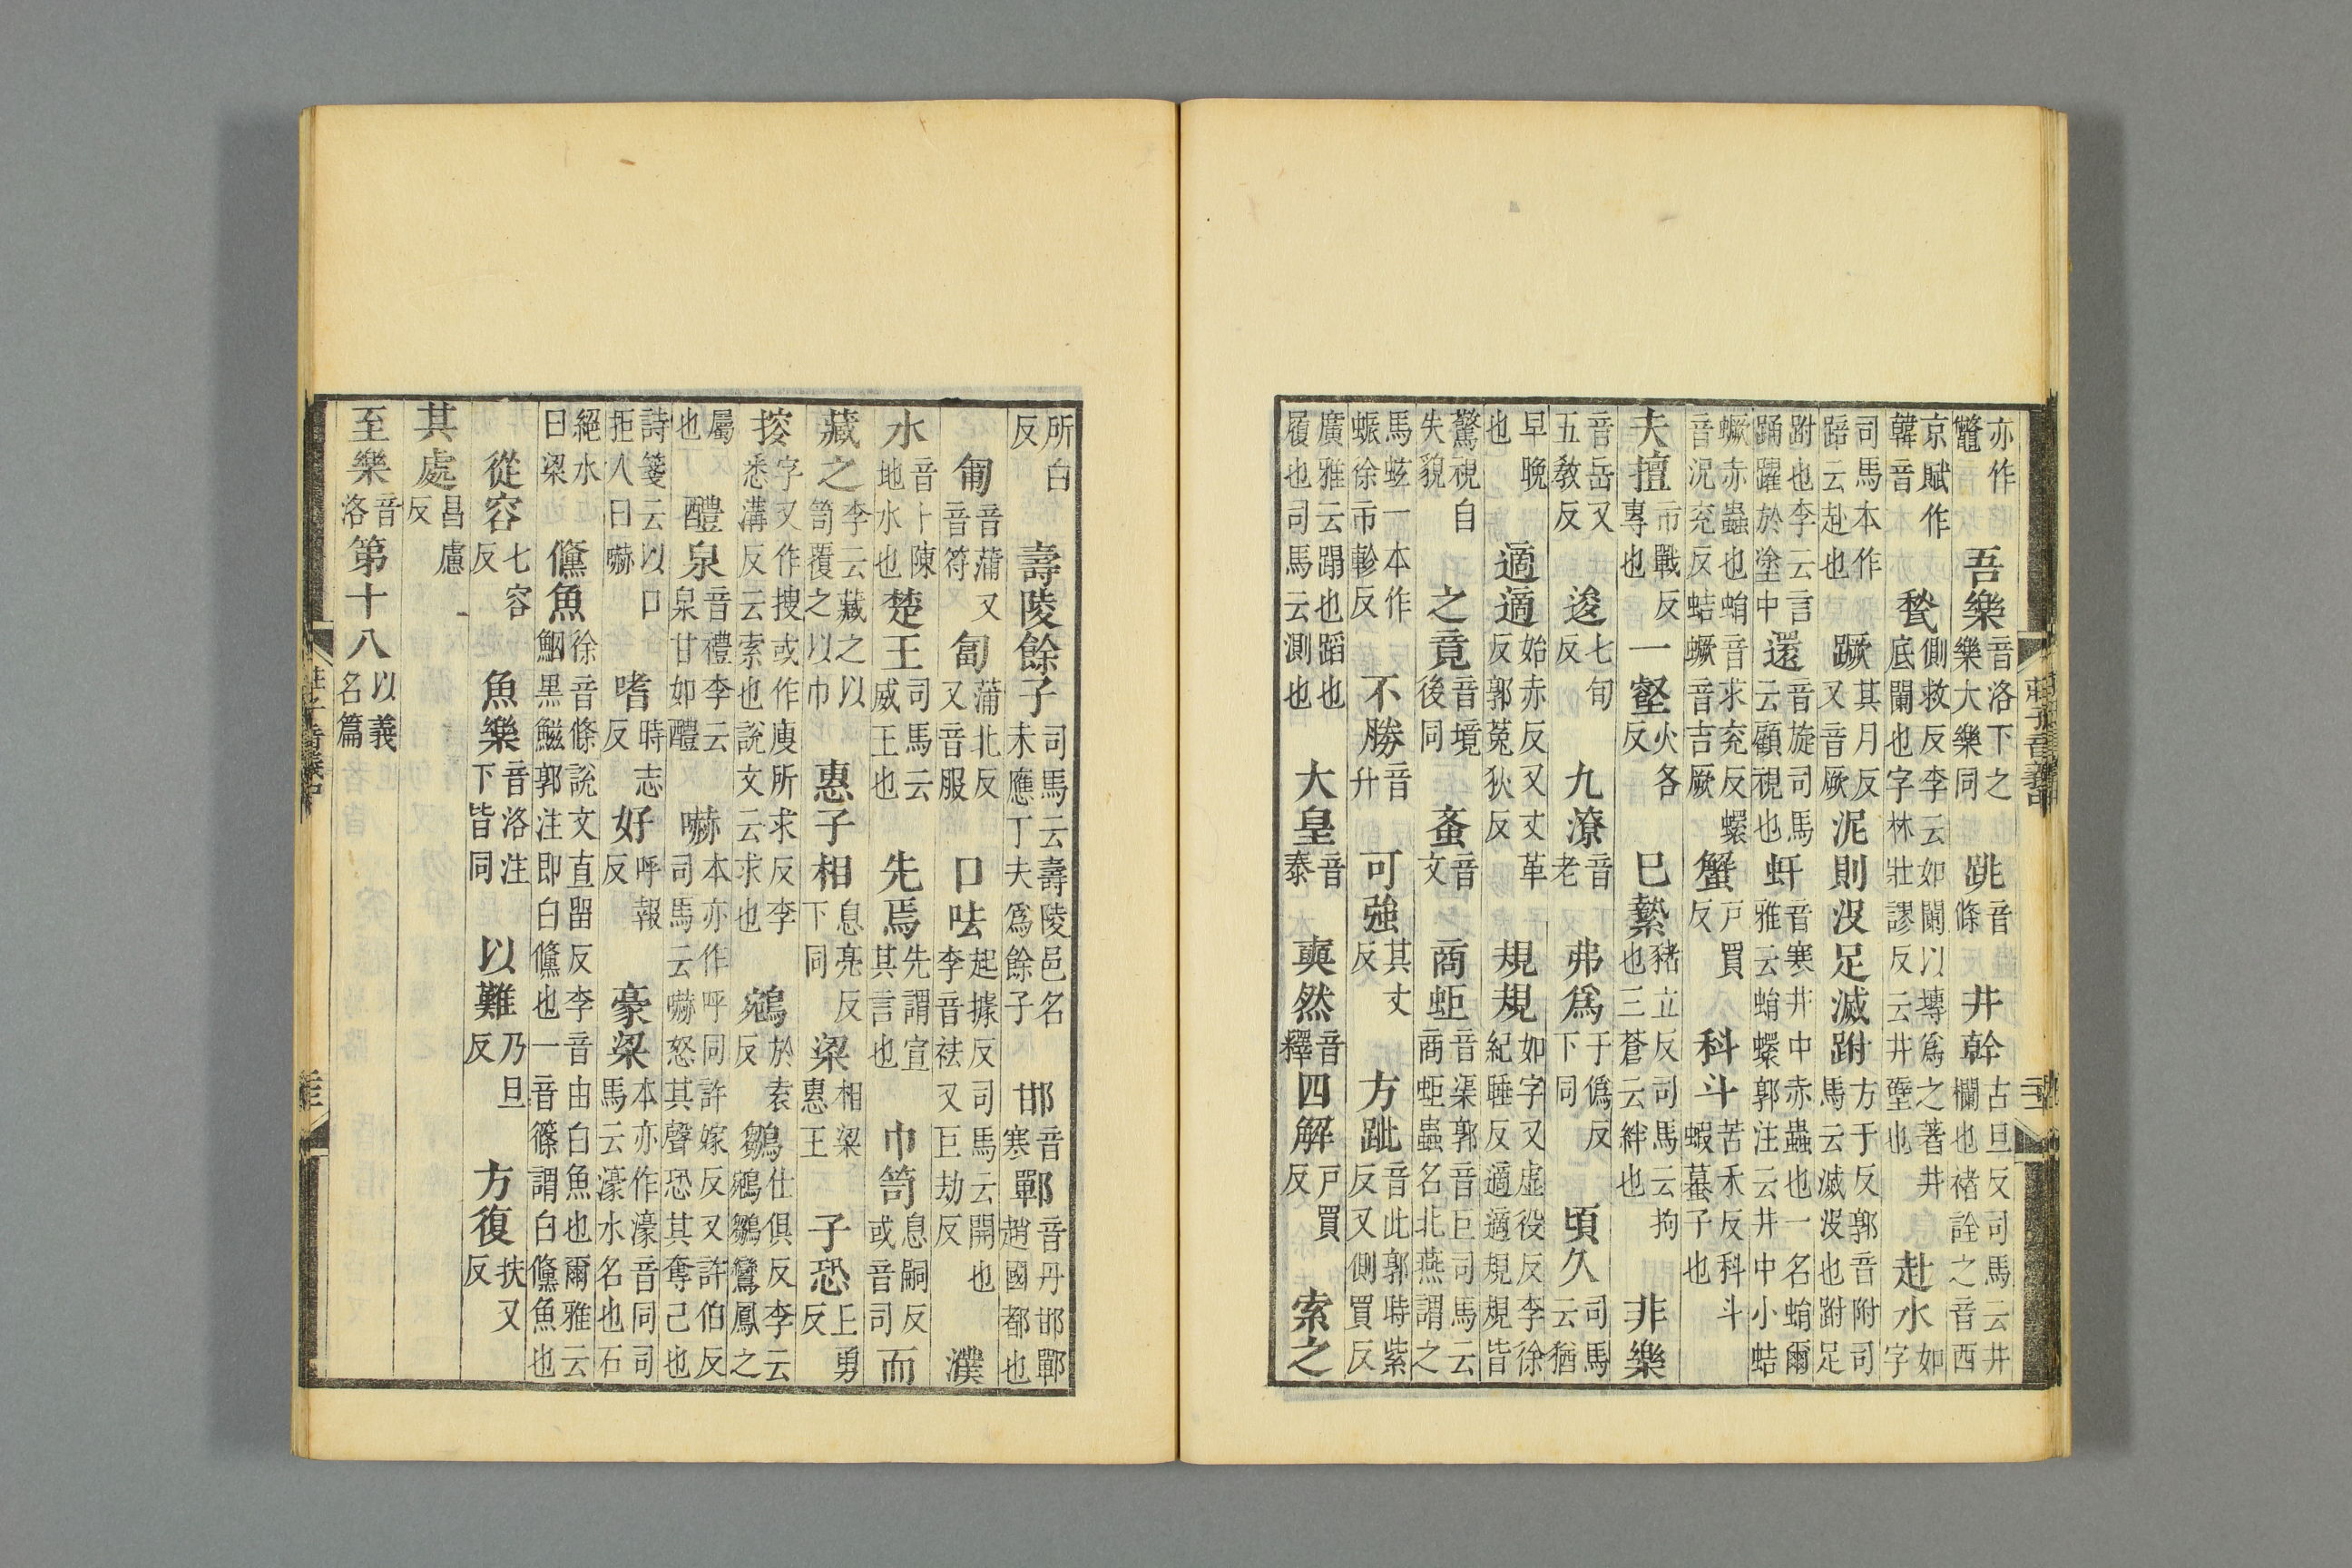 亦作鼈 吾樂音洛下之樂大樂同 跳音條 井幹古旦反司馬云井欄也褚詮之音西
京賦作韓音 甃側救反李云如闌以塼爲之著井底闌也字林壯謬反云井壁也 赴水如字
司馬本作踣云赴也 蹶其月反又音厥 泥則沒足滅跗方于反郭音附司馬云滅沒也跗足
跗也李云言踊躍於塗中 還音旋司馬云顧視也 虷音寒井中赤蟲也一名蜎爾雅云蜎蠉郭注云井中小蛣
蟩赤蟲也蜎音求兖反蠉音況兖反蛣蟩音吉厥 蟹戸買反 科斗苦禾反科斗蝦蟇子也
夫擅市戰反專也 一壑火各反 巳縶豬立反司馬云拘也三蒼云絆也 非樂
音岳又五敎反 逡七旬反 九潦音老 弗爲于僞反下同 頃久司馬云猶
早晚也 適適始赤反又丈革反郭菟狄反 規規如字又虛役反李徐紀睡反適適規規皆
驚視自失貌 之竟音境後同 蚉音文 商蚷音渠郭音巨司馬云商蚷蟲名北燕謂之
馬蚿一本作蜄徐市軫反 不勝音升 可強其丈反 方跐音此郭時紫反又側買反
廣雅云蹋也蹈也履也司馬云測也 大皇音泰 奭然音釋 四解戸買反 索之
莊子音義中
所白反 壽陵餘子司馬云壽陵邑名未應丁夫爲餘子 邯音寒 鄲音丹邯鄲趙國都也
匍音蒲又音符 匐蒲北反又音服 口呿起據反司馬云開也李音祛又巨劫反 濮
水音卜陳地水也 楚王司馬云威王也 先焉先謂宣其言也 巾笥息嗣反或音司 而
藏之李云藏之以笥覆之以巾 惠子相息亮反下同 梁相梁惠王 子恐丘勇反
挍字又作搜或作廋所求反李悉溝反云索也說文云求也 鵷於袁反 鶵仕俱反李云鵷鶵鸞鳳之
屬也 醴泉音禮李云泉甘如醴 嚇本亦作呼同許嫁反又許伯反司馬云嚇怒其聲恐其奪己也
詩箋云以口拒人曰嚇 嗜時志反 好呼報反 豪梁本亦作濠音同司馬云濠水名也石
絕水曰梁 鯈魚徐音條說文直留反李音由白魚也爾雅云鮂黑鰦郭注即白鯈也一音篠謂白鯈魚也
從容七容反 魚樂音洛注下皆同 以難乃旦反 方復扶又反
其處昌慮反
至樂音洛第十八以義名篇